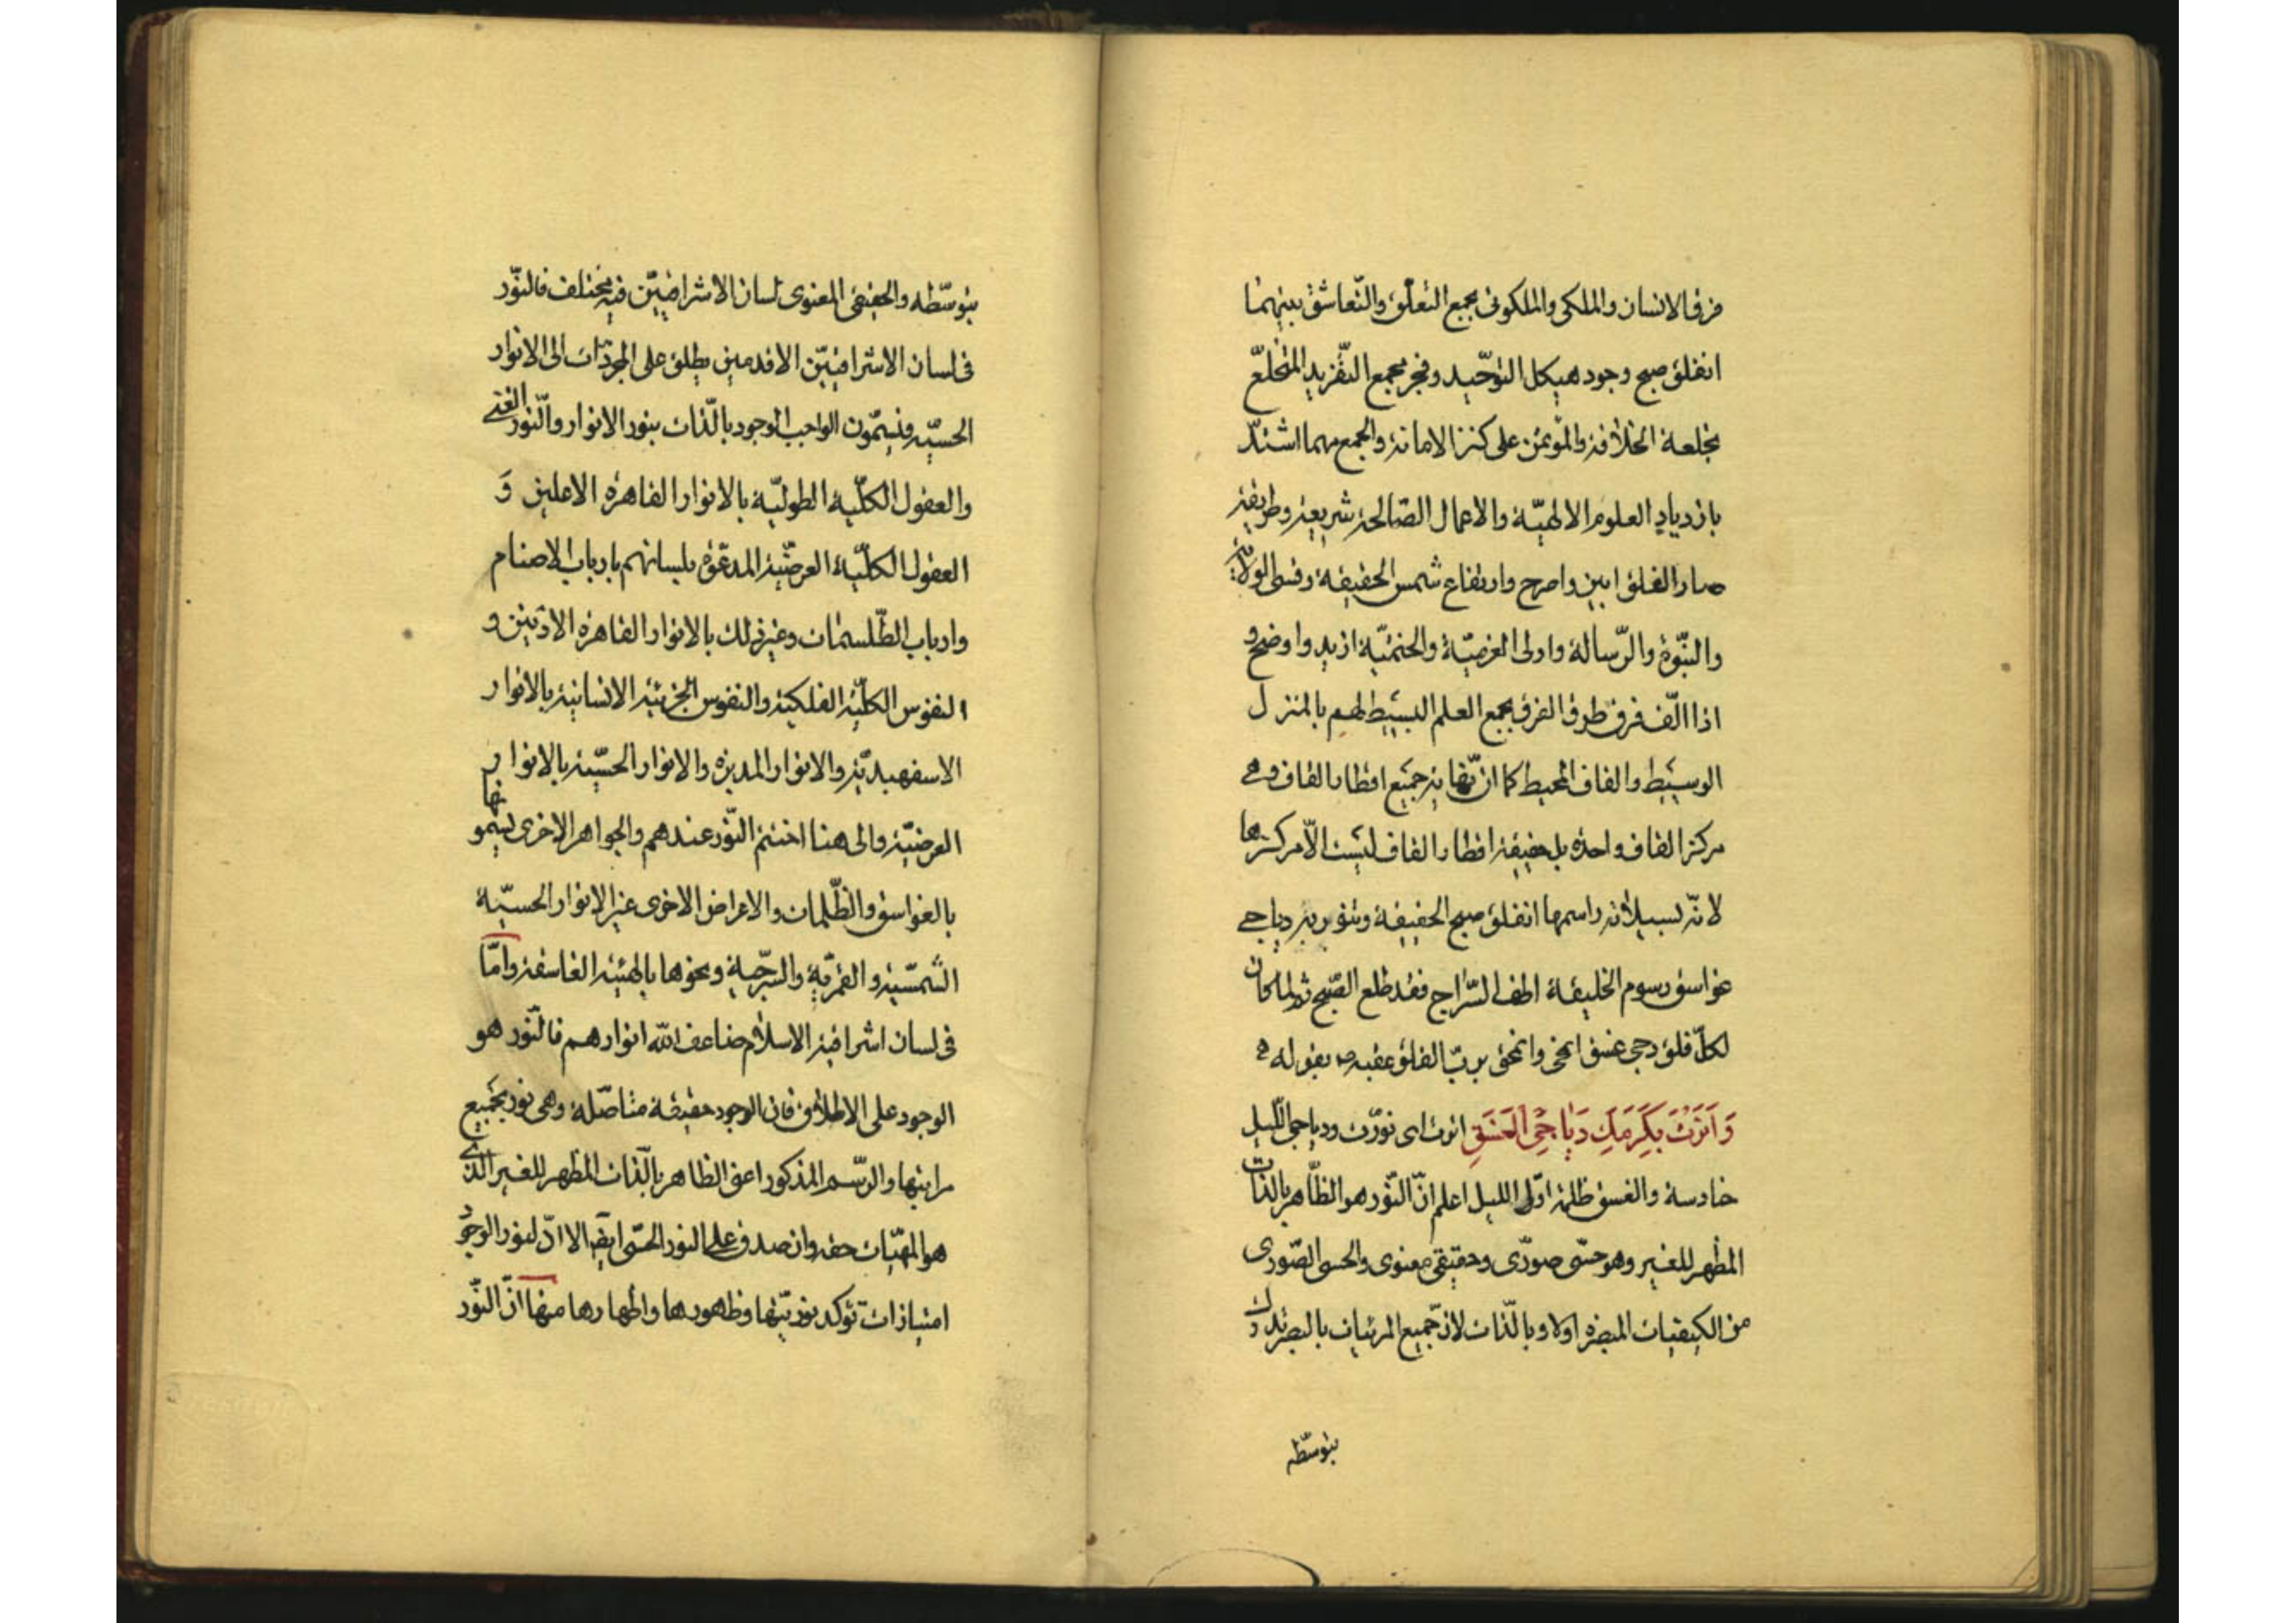 فرق الانسان والملكى والملكوتى بجمع التعلّق والتّعاشق بينهما
انفلق صبح وجود هيكل التوحّيد وفجر مجمع التّفريد المتخلّع
بخلعة الخلافة والمؤتمن على كنز الامانة والجمع مهما اشتدّ
بازدياد العلوم الالهيّة والاعمال الصّالحة شريعة وطريقة
صار الفلق ابين واصرح وارتفاع شمس الحقيقة وقسطى الولاية
والنّبوّة والرّسالة واولى العزميّة والختميّة ازيد واوضح و
اذا الّف فرق طرفى الفرق بجمع العلم البسيط لهم بالمنزل
الوسيط والقاف المحيط كما انّ نهاية جميع اقطار القاف وهى
مركز القاف واحدة بل حقيقة اقطار القاف ليست الّا مركزها
لانّه بسيلانه راسمها انفلق صبح الحقيقة وتنوّر به دياجى
غواسق رسوم الخليقة اطف السّراج فقد طلع الصّبح ثمّ لمّا كان
لكلّ فلق دجى غسق انمحى وانمحق بربّ الفلق عقبه ص بقوله
وَاَنَرْتَ بِكَرَمِكَ دَيَاجِىَ الْغَسَقِ انرت اى نوّرت ودياجى اللّيل
حنادسه والغسق ظلمة اوّل الليل اعلم انّ النّور هو الظّاهر بالذّات
المظهر للغير وهو حسّى صورّى وحقيقى معنوى والحسى الصّورى
من الكيفيات المبصرة اولا وبالذّات لانّ جميع المرئيات بالبصر تدرك
بتوسّطه
بتوسّطه والحقيقى المعنوى لسان الاشراقيّين فيه مختلف فالنّور
فى لسان الاشراقيّين الاقدمين يطلق على المجرّدات الى الانوار
الحسيّة ويسمّون الواجب الوجود بالذّات بنور الانوار والنّور الغنى
والعقول الكلّية الطوليّة بالانوار القاهرة الاعلين وَ
العقول الكلّية العرضيّة المدعوّة بلسانهم بارباب الاصنام
وارباب الطّلسمات وغير ذلك بالانوار القاهرة الادنين و
النفوس الكلّية الفلكية والنفوس الجزئيّة الانسانية بالانوار
الاسفهبديّة والانوار المدبرة والانوار الحسّية بالانوار
العرضيّة والى هنا اختتم النّور عندهم والجواهر الاخرى يسمونها
بالغواسق والظّلمات والاعراض الاخرى غير الانوار الحسيّة
الشمسّية والقمريّة والسرجّية ونحوها بالهيئة الغاسقة وامّا
فى لسان اشراقية الاسلام ضاعف الله انوارهم فالنّور هو
الوجود على الاطلاق فان الوجود حقيقة متاصّلة وهى نور بجميع
مراتبها والرّسم المذكور اعنى الظاهر بالذّات المظهر للغير الذى
هو المهيّات حقه وان صدق على النور الحسّى ايضا الا انّ لنور الوجود
امتيازات تؤكد نوريّتها وظهورها واظهارها منها انّ النّور